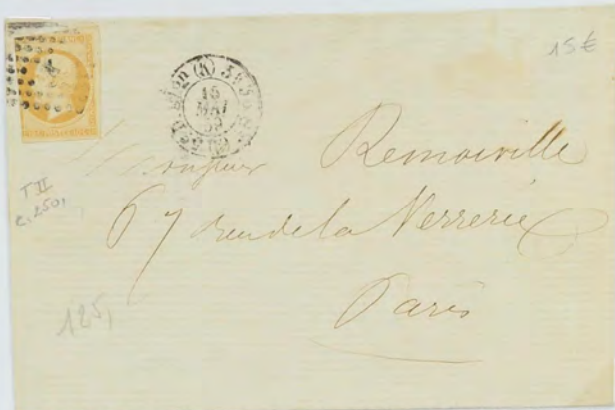 15€
15
MAI
59
Monsieur Remoiville
67 rue de la Verrerie
Paris
T II
c. 250,
125,